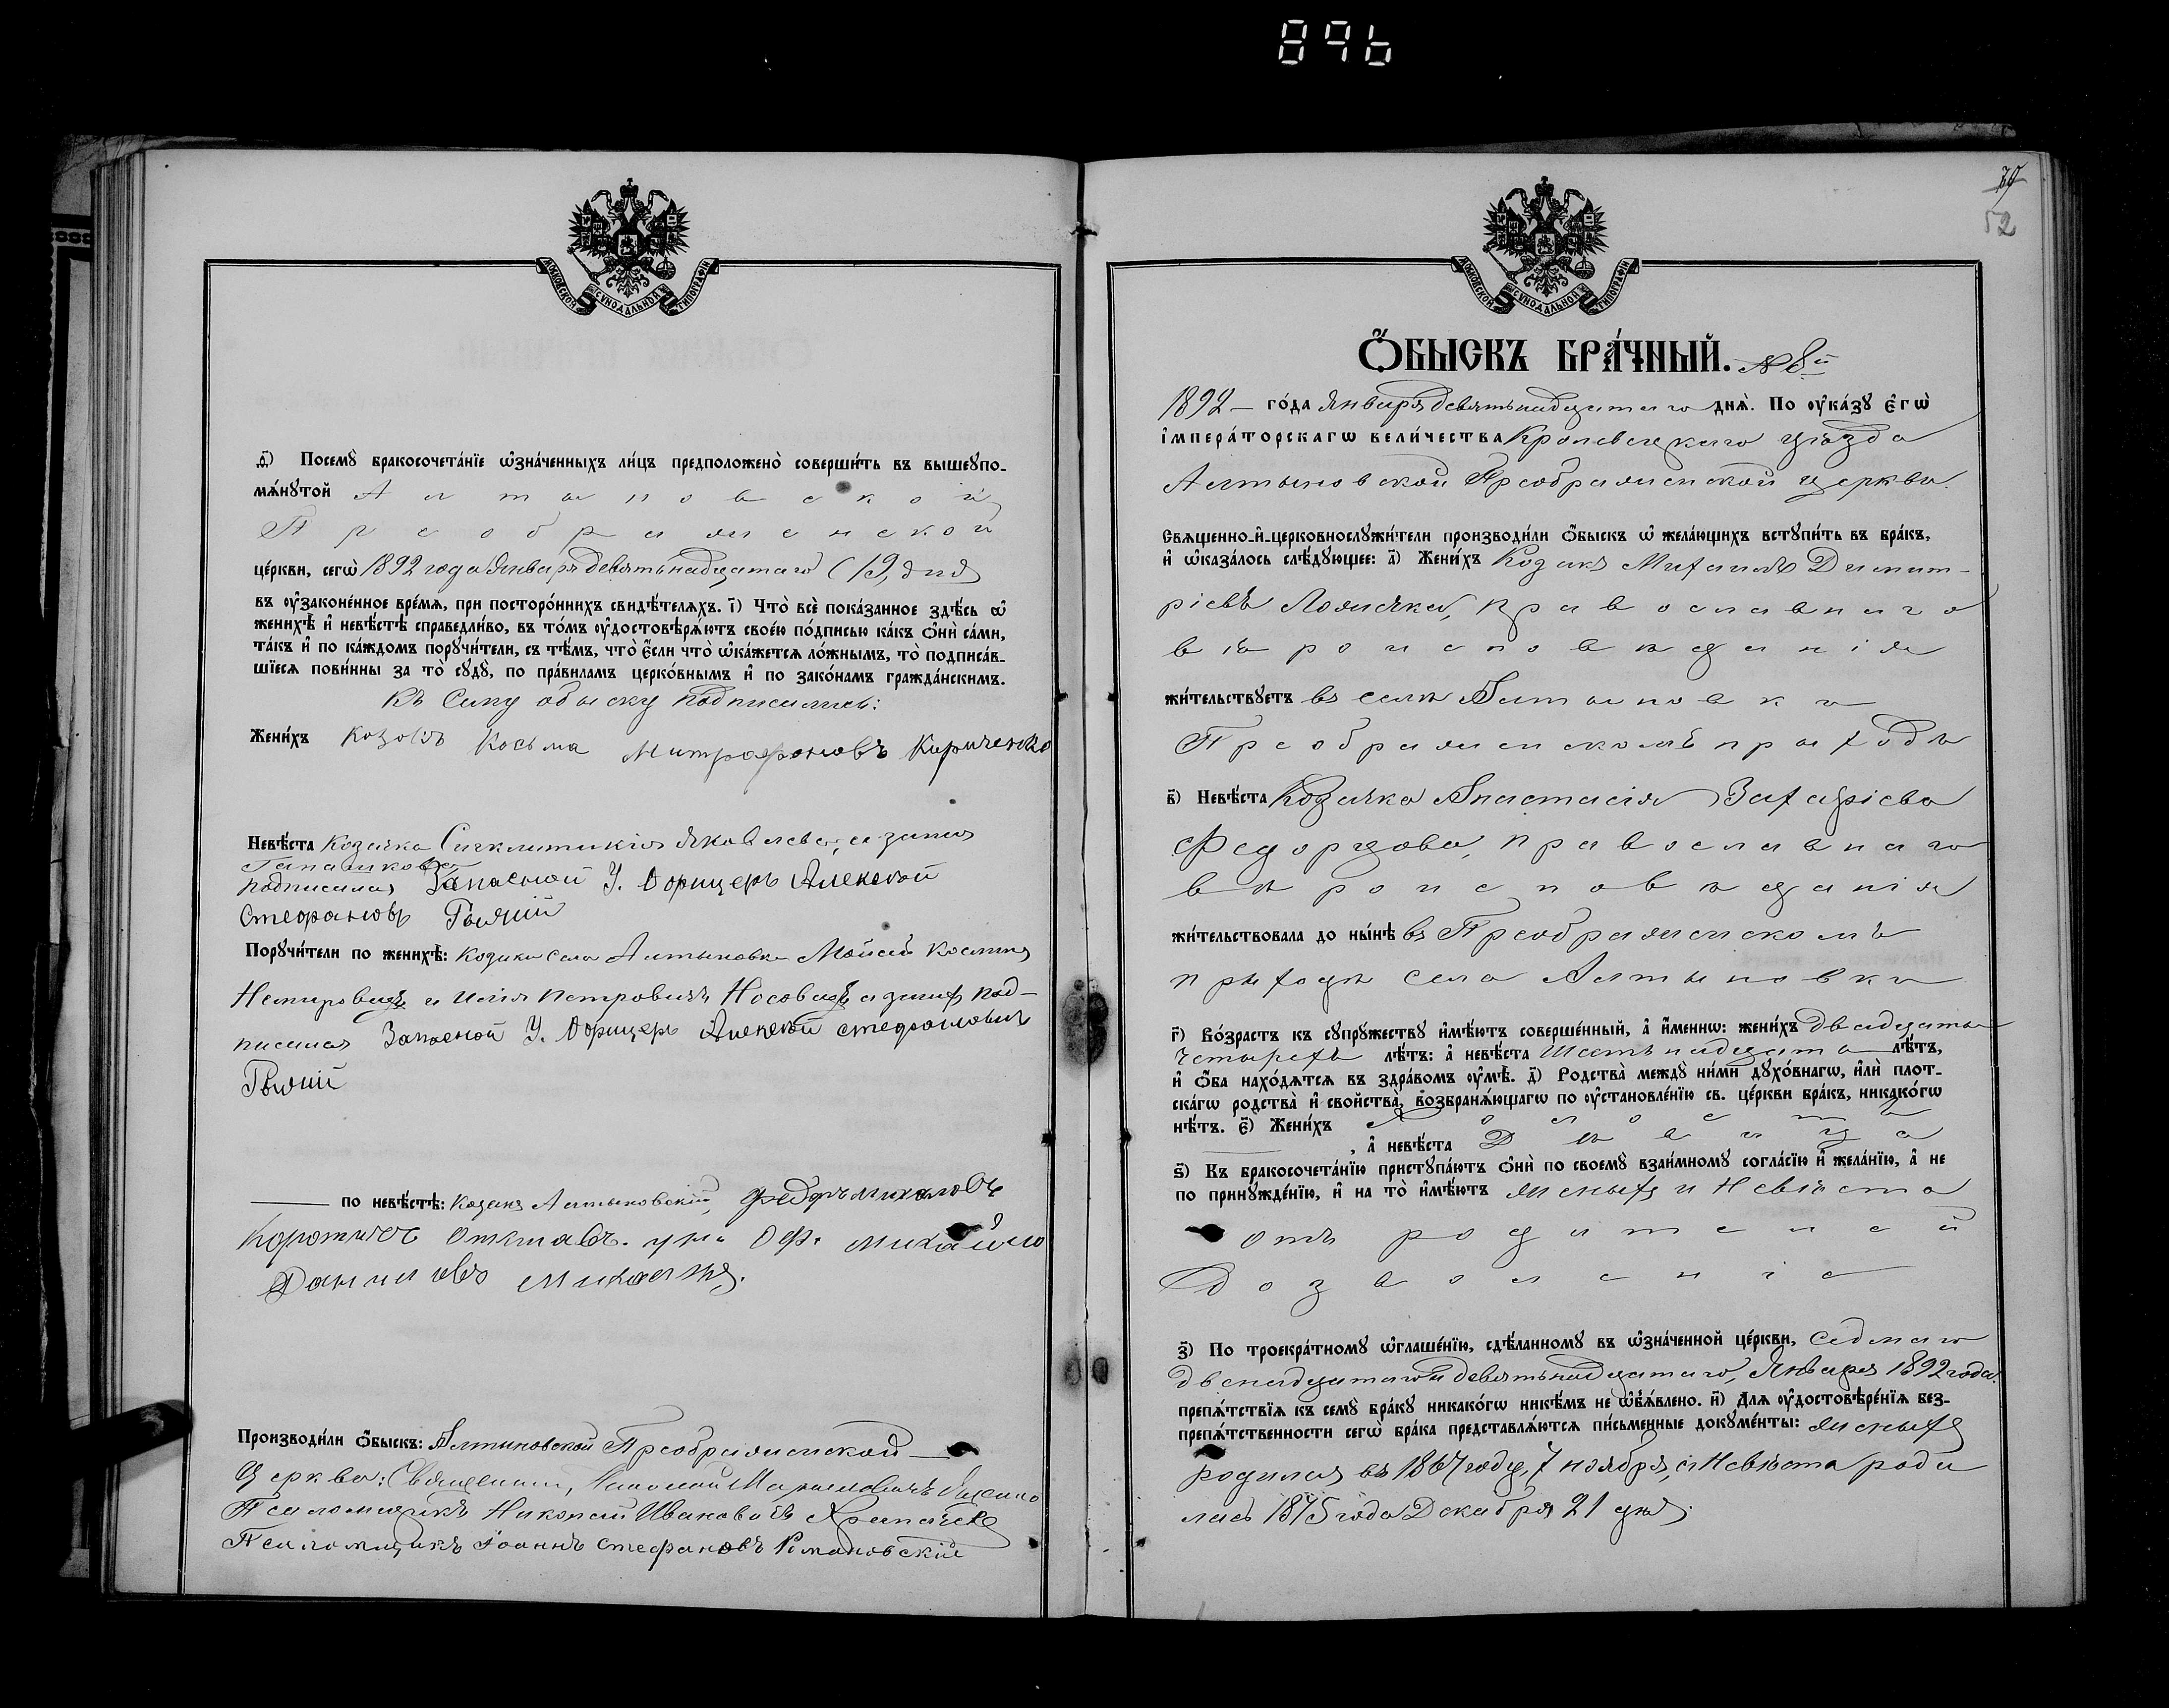 896
МОСКОВСКОЙ СУНОДАЛЬНОЙ ТИПОГРАФІИ
д҃) Посемꙋ̀ бракосочета́нїе ѡ҆зна́ченныхъ ли́цъ предположено̀ соверши́ть въ вышеꙋпо-
мѧ́нꙋтой Алтыновской
Преображенской
це́ркви, сегѡ̀ 1892 года Января девятьнадцатаго (19) дня
въ ᲂу҆законе́нное вре́мѧ, при посторо́ннихъ свидѣ́телѧхъ. і҃) Что̀ всѐ пока́занное здѣ́сь ѡ҆
женихѣ̀ и҆ невѣ́стѣ справедли́во, въ то́мъ ᲂу҆достовѣрѧ́ютъ свое́ю по́дписью ка́къ ѻ҆нѝ са́ми,
та́къ и҆ по ка́ждомъ порꙋчи́тели, съ тѣ́мъ, что̀ є҆́сли что̀ ѡ҆ка́жетсѧ ло́жнымъ, то̀ подписа́в-
шїесѧ пови́нны за то̀ сꙋдꙋ̀, по пра́виламъ церко́внымъ и҆ по зако́намъ гражда́нскимъ.
Къ Сему обыску подписались:
Жени́хъ Козакъ Косьма Митрофановъ Кириченко
Невѣ́ста Козачка Синклитикія Яковлева, а за нея
подписался Запасной У. Офицеръ Алексѣй
Стефановъ Гылкій
Порꙋчи́тели по женихѣ̀: Козаки села Алтыновки Моисей Космичъ
и Илія Петровичъ а за нихъ под-
писался Запасной У. Офицеръ Алексѣй Стефановичъ
Гылкій
по невѣ́стѣ: Козакъ Алтыновскій, Федоръ Михаловъ
Коротичъ Отставъ. Оф. Михайло
Даниловъ
Производи́ли ѻ҆́быскъ: Алтыновской Преображенской
Церкви: Священникъ, Николай
Псаломщикъ Николай Ивановъ
Псаломщикъ Іоаннъ Стефановъ Романовскій
52
МОСКОВСКОЙ СУНОДАЛЬНОЙ ТИПОГРАФІИ
Ѻ҆́БЫСКЪ БРА́ЧНЫЙ. № 8й
1892 го́да Января девятьнадцатаго днѧ̀. По ᲂу҆ка́зꙋ є҆гѡ̀
і҆мпера́торскагѡ вели́чества Кролевецкаго уѣзда
Алтыновской Преображенской церкви
Свѧщенно-и҆-церковнослꙋжи́тели производи́ли ѻ҆́быскъ ѡ҆ жела́ющихъ встꙋпи́ть въ бра́къ,
и҆ ѡ҆каза́лось слѣ́дꙋющее: а҃) Жени́хъ Козакъ Михаилъ Димит-
ріевъ православнаго
вѣроисповѣданія
жи́тельствꙋетъ въ селѣ Алтыновки
Преображенскомъ приходѣ
в҃) Невѣ́ста Козачка Анастасія Захаріева
Федорцова, православнаго
вѣроисповѣданія
жи́тельствовала до ны́нѣ въ Преображенскомъ
приходѣ села Алтыновки
г҃) Во́зрастъ къ сꙋпрꙋ́жествꙋ и҆мѣ́ютъ соверше́нный, а҆ и҆́меннѡ: жени́хъ двадцать
четырехъ лѣ́тъ: а҆ невѣ́ста шестьнадцать лѣ́тъ,
и҆ ѻ҆́ба нахо́дѧтсѧ въ здра́вомъ ᲂу҆мѣ̀. д҃) Родства̀ междꙋ̀ ни́ми дꙋхо́внагѡ, и҆лѝ плот-
ска́гѡ родства̀ и҆ сво́йства̀, возбранѧ́ющагѡ по ᲂу҆становле́нїю св. це́ркви бра́къ, никако́гѡ
нѣ́тъ. є҃) Жени́хъ Холостъ
, а҆ невѣ́ста Дѣвица
ѕ҃) Къ бракосочета́нїю пристꙋпа́ютъ ѻ҆нѝ по своемꙋ̀ взаи́мномꙋ согла́сїю и҆ жела́нїю, а҆ не
по принꙋжде́нїю, и҆ на то̀ и҆мѣ́ютъ женихъ и Невѣста
отъ родителей
дозволеніе
з҃) По троекра́тномꙋ ѡ҆глаше́нїю, сдѣ́ланномꙋ въ ѡ҆зна́ченной це́ркви, седмаго
двенадцатаго и девятьнадцатаго, Января 1892 года.
препѧ́тствїѧ къ семꙋ̀ бра́кꙋ никако́гѡ никѣ́мъ не ѡ҆б̾ѧ́влено. и҃) Длѧ ᲂу҆достовѣре́нїѧ без-
препѧ́тственности сегѡ̀ бра́ка представлѧ́ютсѧ пи́сьменные докꙋме́нты: женихъ
родился въ 1867 году, 7 ноября, а Невѣста роди
лась 1875 года Декабря 21 дня.